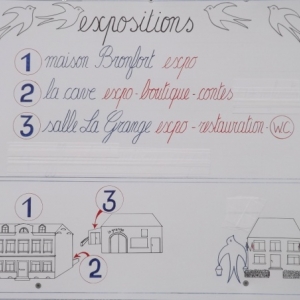 expositions
1 maison Bronfort expo
2 la cave expo-boutique-contes
3 salle La Grange expo-restauration-WC
1
3
2